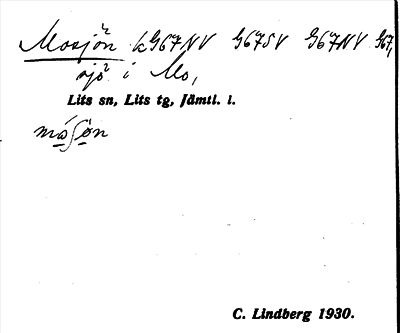 Mosjön k G67NV G67SV G67NV G67,
sjö i Mo,
Lits sn, Lits tg, Jämtl. l.
måʃön
C. Lindberg 1930.